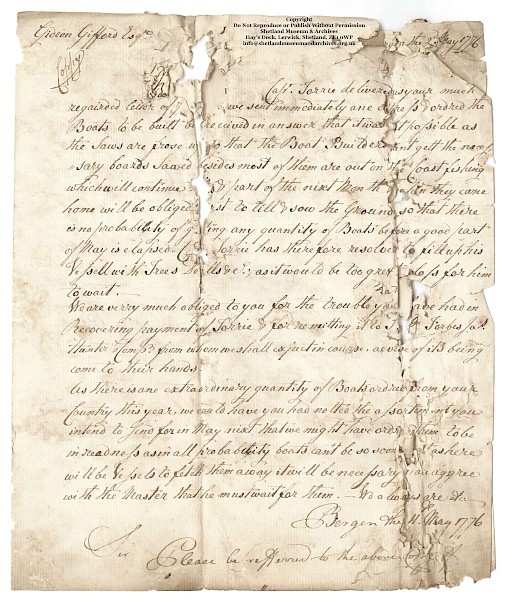 Copyright
Do Not Reproduce or Publish Without Permission
Shetland Museum & Archives
Hay's Dock, Lerwick, Shetland, ZE1 0WP
info@shetlandmuseumandarchives.org.uk
Gideon Gifford Esqr. the 2 May 1776
Copy
Sir
Capt. Torrie delivered us your much
regairded letter of we sent immediately ane & ordred the
Boats to be built received in answer that it was possible as
the Saws are froze that the Boat Builders gett the nece
sary boards Sawed besides most of them are out on the Coast fishing
which will continue & part of the nixt then they came
home will be obliged to till & sow the Ground so that there
is no probability of any quantity of Boats before a good part
of May is elapsed. Torrie has therefore resolved to fill up his
Vessell with Trees &c.; as it would be too great loss for him
to wait.
We are verry much obliged to you for the trouble you have had in
Recovering payment of Torrie & for remitting it to Forbes
Hunter Comp. from whom we shall expect in course advise of its being
come to their hands.
As there is ane extraordinary quantity of Boats ordred from your
Country this year, we could have you had noted the asortiment you
intend to send for in May next that we might have ordred them to be
in readness as in all probability boats cant be so soon as here
will be Vessels to fetch them away it will be necessary you aggree
with the Master that he must wait for them. — We always are &c.
Bergen the 11 May 1776
Sir Please be refferred to the above Copy